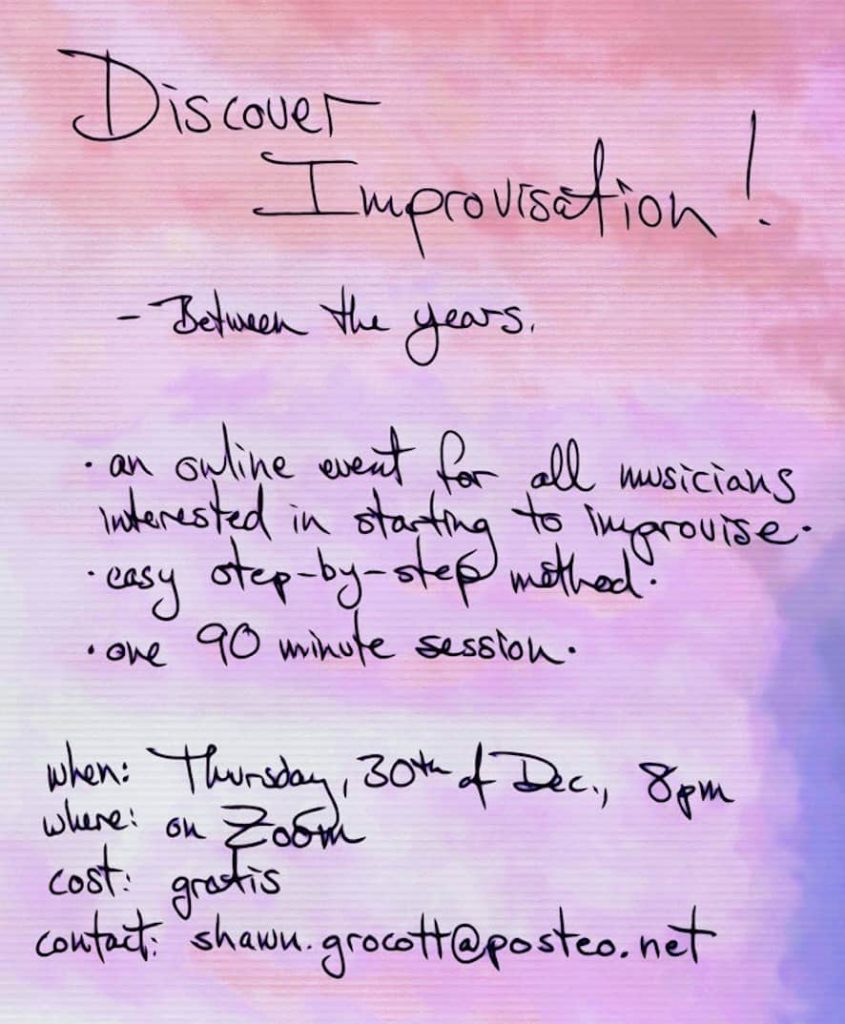 Discover
Improvisation!
- Between the years.
· an online event for all musicians
interested in starting to improvise.
· easy step-by-step method.
· one 90 minute session.
when: Thursday, 30th of Dec., 8pm
where: on Zoom
cost: gratis
contact: shawn.grocott@posteo.net